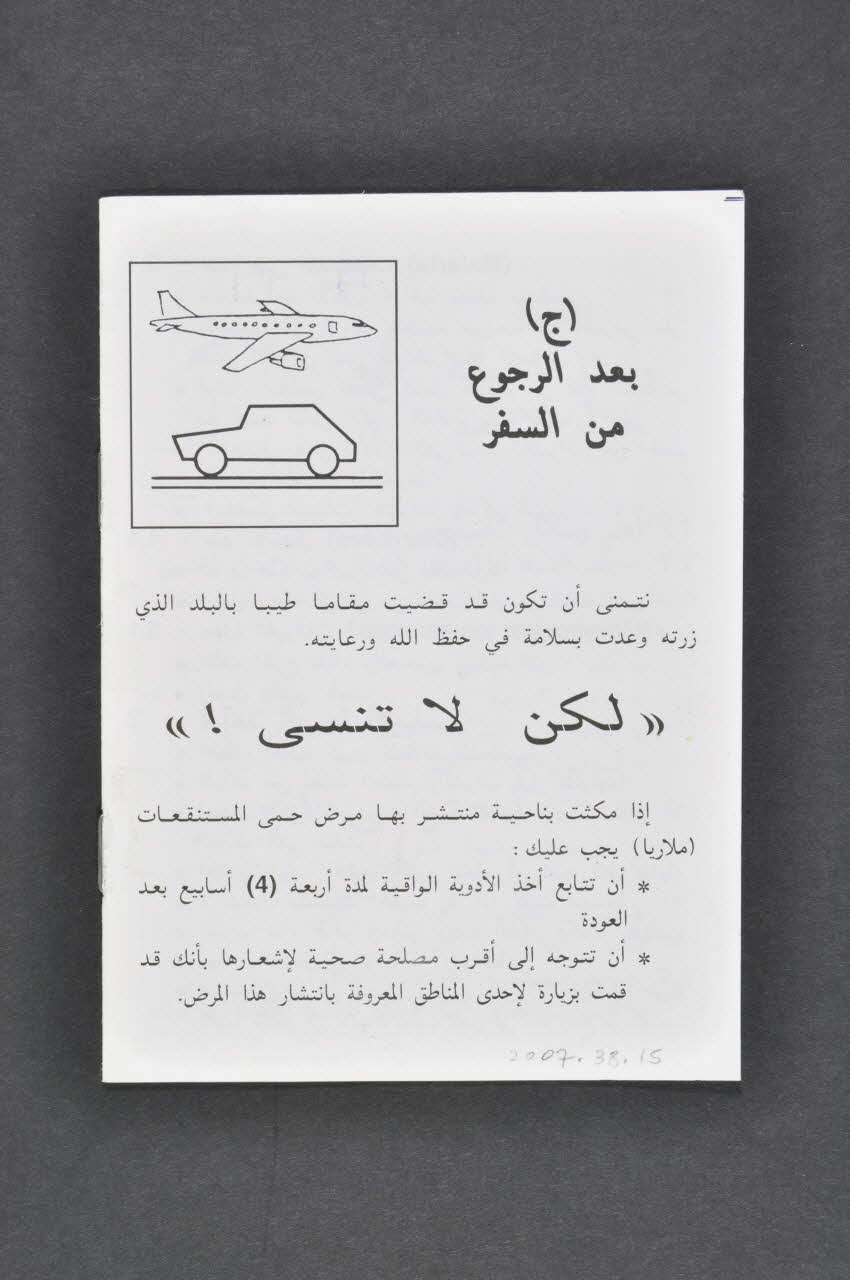 (ج)
بعد الرجوع
من السفر
نتمنى أن تكون قد قضيت مقاما طيبا بالبلد الذي
زرته وعدت بسلامة في حفظ الله ورعايته.
« لكن لا تنسى ! »
إذا مكثت بناحية منتشر بها مرض حمى المستنقعات
(ملاريا) يجب عليك :
* أن تتابع أخذ الأدوية الواقية لمدة أربعة (4) أسابيع بعد
العودة
* أن تتوجه إلى أقرب مصلحة صحية لإشعارها بأنك قد
قمت بزيارة لإحدى المناطق المعروفة بانتشار هذا المرض.
2007.38.15